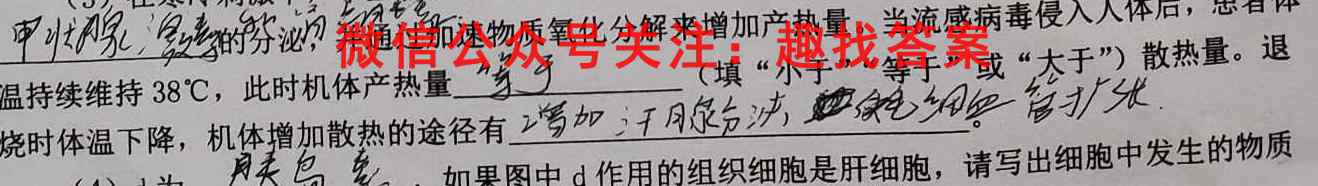 甲状腺激素的分泌，通过加速物质氧化分解来增加产热量。当流感病毒侵入人体后，患者体
微信公众号关注：趣找答案
温持续维持38℃，此时机体产热量 等于 （填“小于”“等于”或“大于”）散热量。退
烧时体温下降，机体增加散热的途径有 增加汗腺分泌，毛细血管扩张。
如果图中d作用的组织细胞是肝细胞，请写出细胞中发生的物质